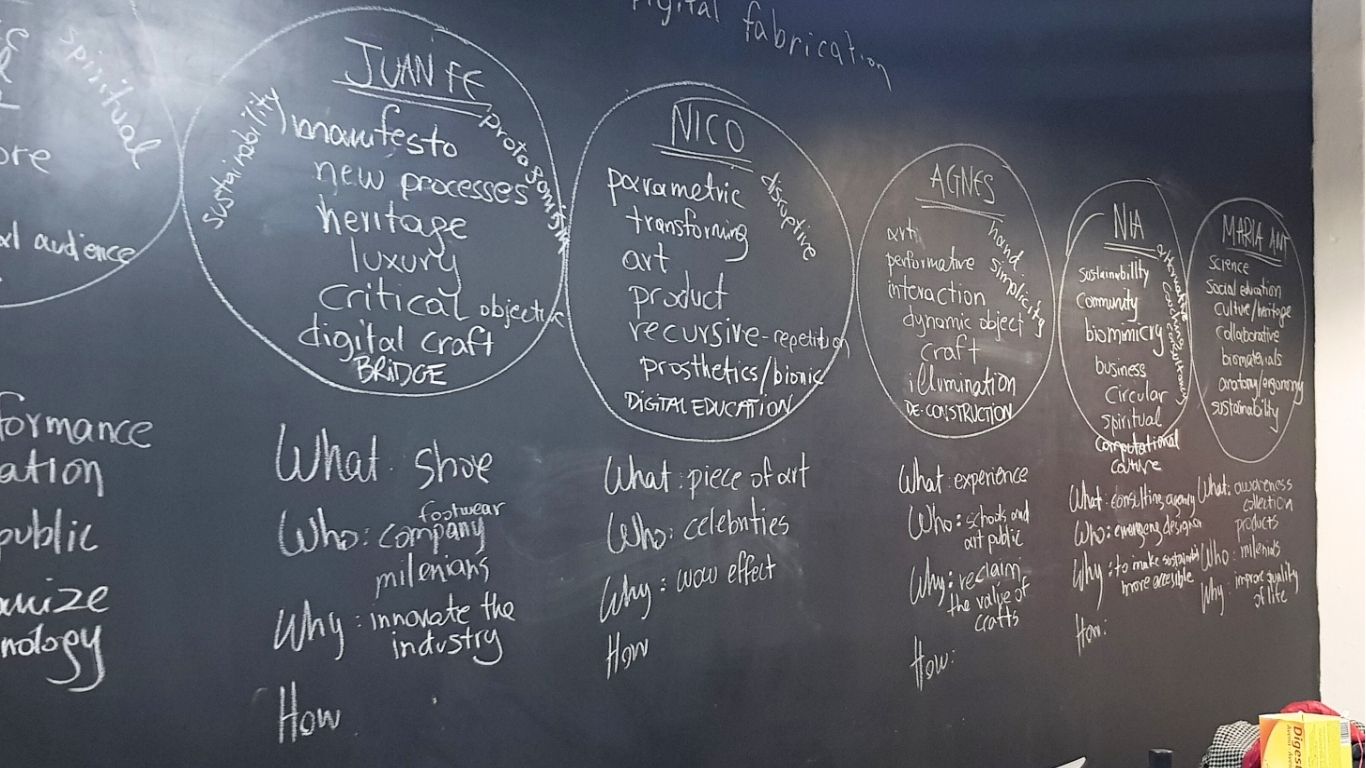 Digital fabrication
spiritual
ore
audience
formance
ation
public
nology
JUAN FE
sustainability
protagonist
manifesto
new processes
heritage
luxury
critical
digital craft
BRIDGE
What: shoe
footwear
Who: company
milenians
Why: innovate the
industry
How
NICO
disruptive
parametric
transforming
art
product
recursive-repetition
prosthetics/bionic
DIGITAL EDUCATION
What: piece of art
Who: celebrities
Why: wow effect
How
AGNES
hand
simplicity
art
performative
interaction
dynamic object
craft
illumination
DE-CONSTRUCTION
What: experience
Who: schools and
art public
Why: reclaim
the value of
crafts
How:
NIA
sustainability
community
biomimicry
business
circular
spiritual
computational
culture
What: consulting agency
Who: emerging designer
Why: to make sustainabl
more accesible
How:
MARIA ANT
science
social education
culture/heritage
collaborative
biomaterials
anatomy/ergonomy
sustainability
What: awareness
collection
products
Who: milenials
Why: improve quality
of life
Diges